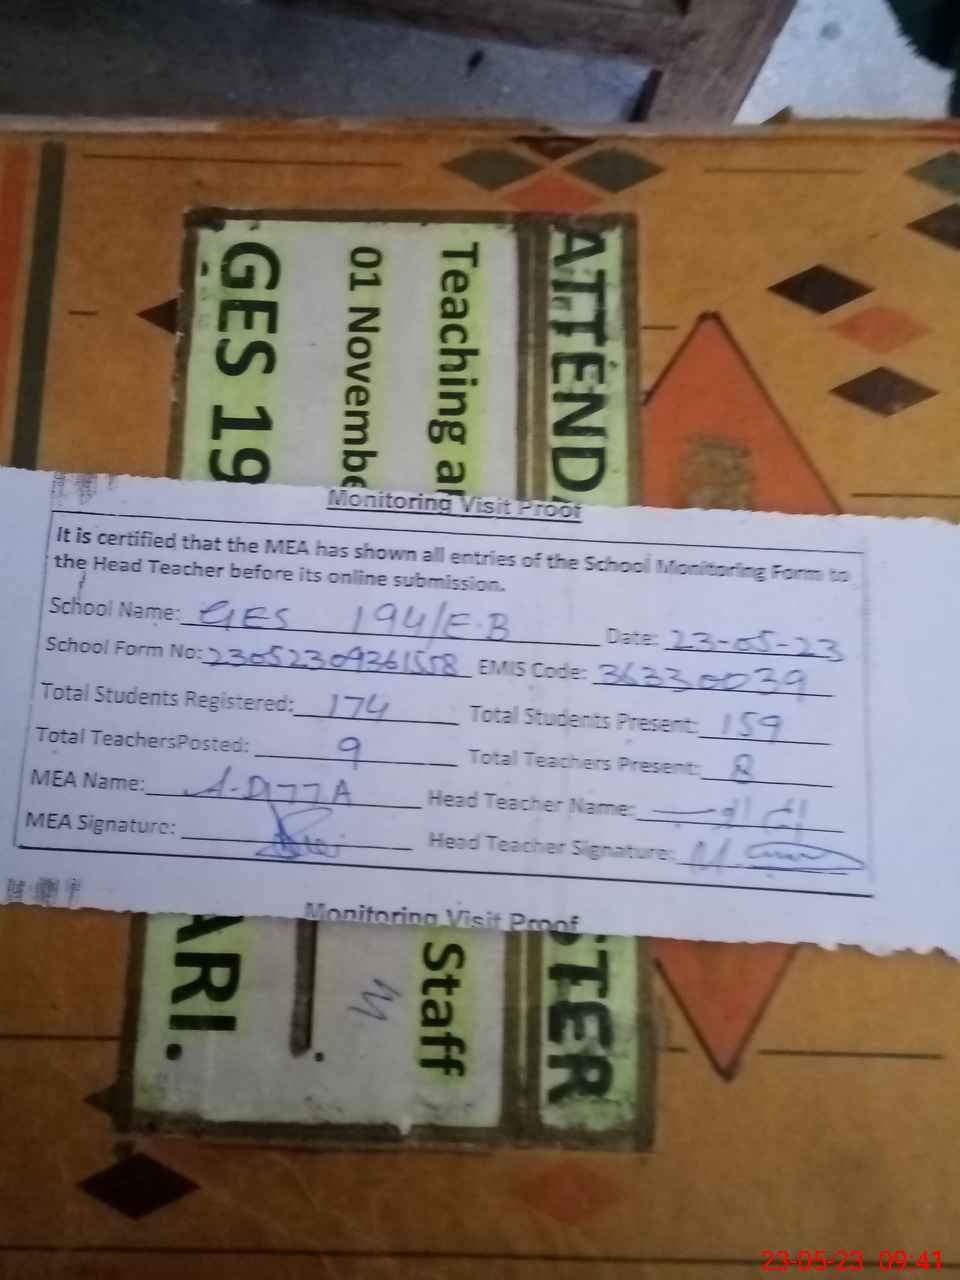 ATTEND
Teaching a
01 Novembe
GES 19
Monitoring Visit Proof
It is certified that the MEA has shown all entries of the School Monitoring Form to
the Head Teacher before its online submission.
School Name: GES 194/E.B Date: 23-05-23
School Form No: 23052309361558 EMIS Code: 36330039
Total Students Registered: 174 Total Students Present: 159
Total TeachersPosted: 9 Total Teachers Present: 8
MEA Name: Head Teacher Name:
MEA Signature: Head Teacher Signature:
Monitoring Visit Proof
STER
Staff
ARI.
23-05-23 09:41